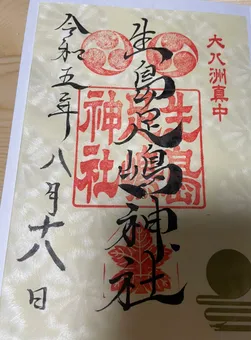 大八洲真中
生島足嶋神社
生島足島神社
令和五年八月十八日